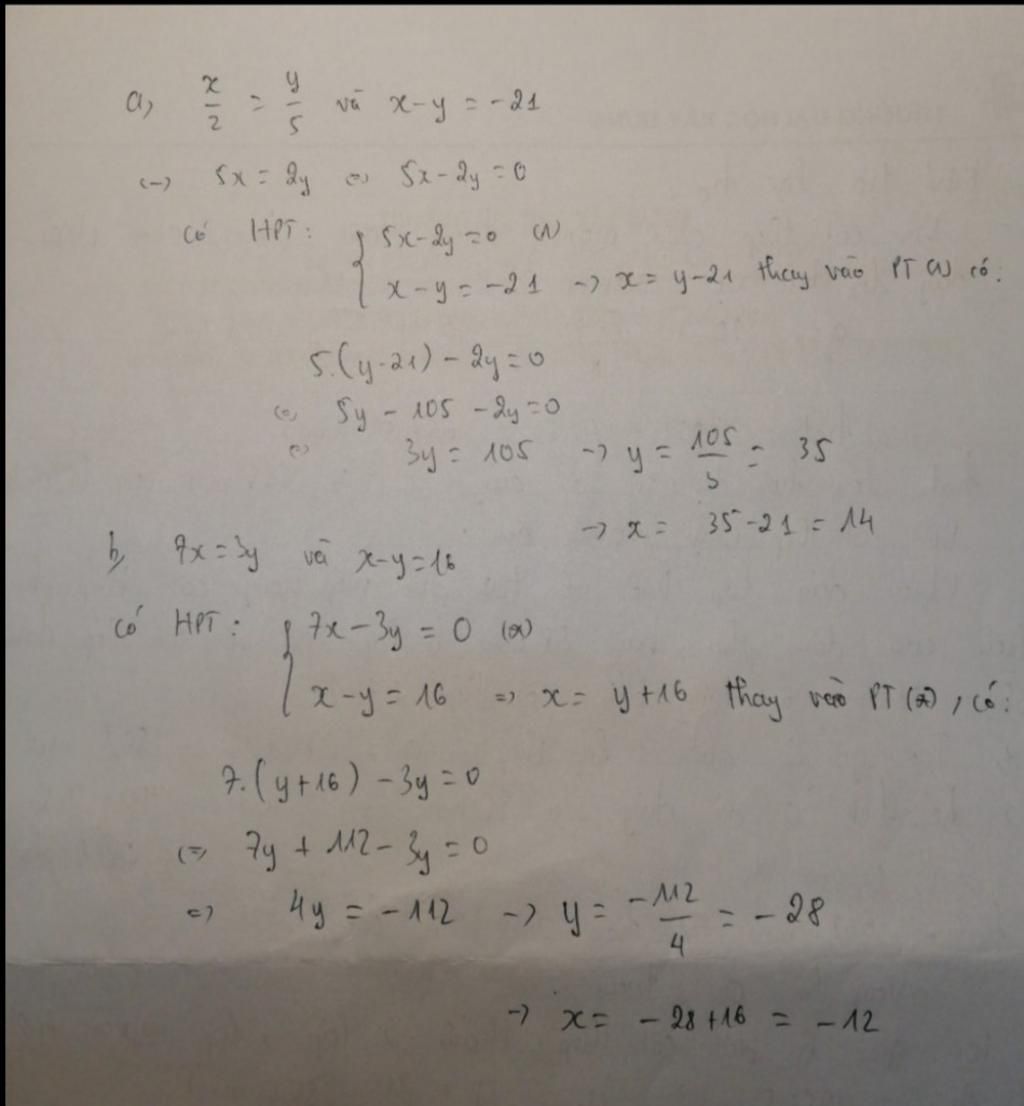 a, x/2 = y/5 và x-y = -21
<-> 5x = 2y <=> 5x-2y=0
Có HPT: { 5x-2y=0 (1)
x-y = -21 -> x = y-21 thay vào PT (1) có:
5.(y-21) - 2y=0
<=> 5y - 105 - 2y=0
<=> 3y = 105 -> y = 105/3 = 35
-> x = 35-21 = 14
b, 7x=3y và x-y=16
Có HPT: { 7x-3y = 0 (*)
x-y = 16 => x = y+16 thay vào PT (*), có:
7.(y+16) - 3y=0
<=> 7y + 112 - 3y = 0
<=> 4y = -112 -> y = -112/4 = -28
-> x = -28+16 = -12